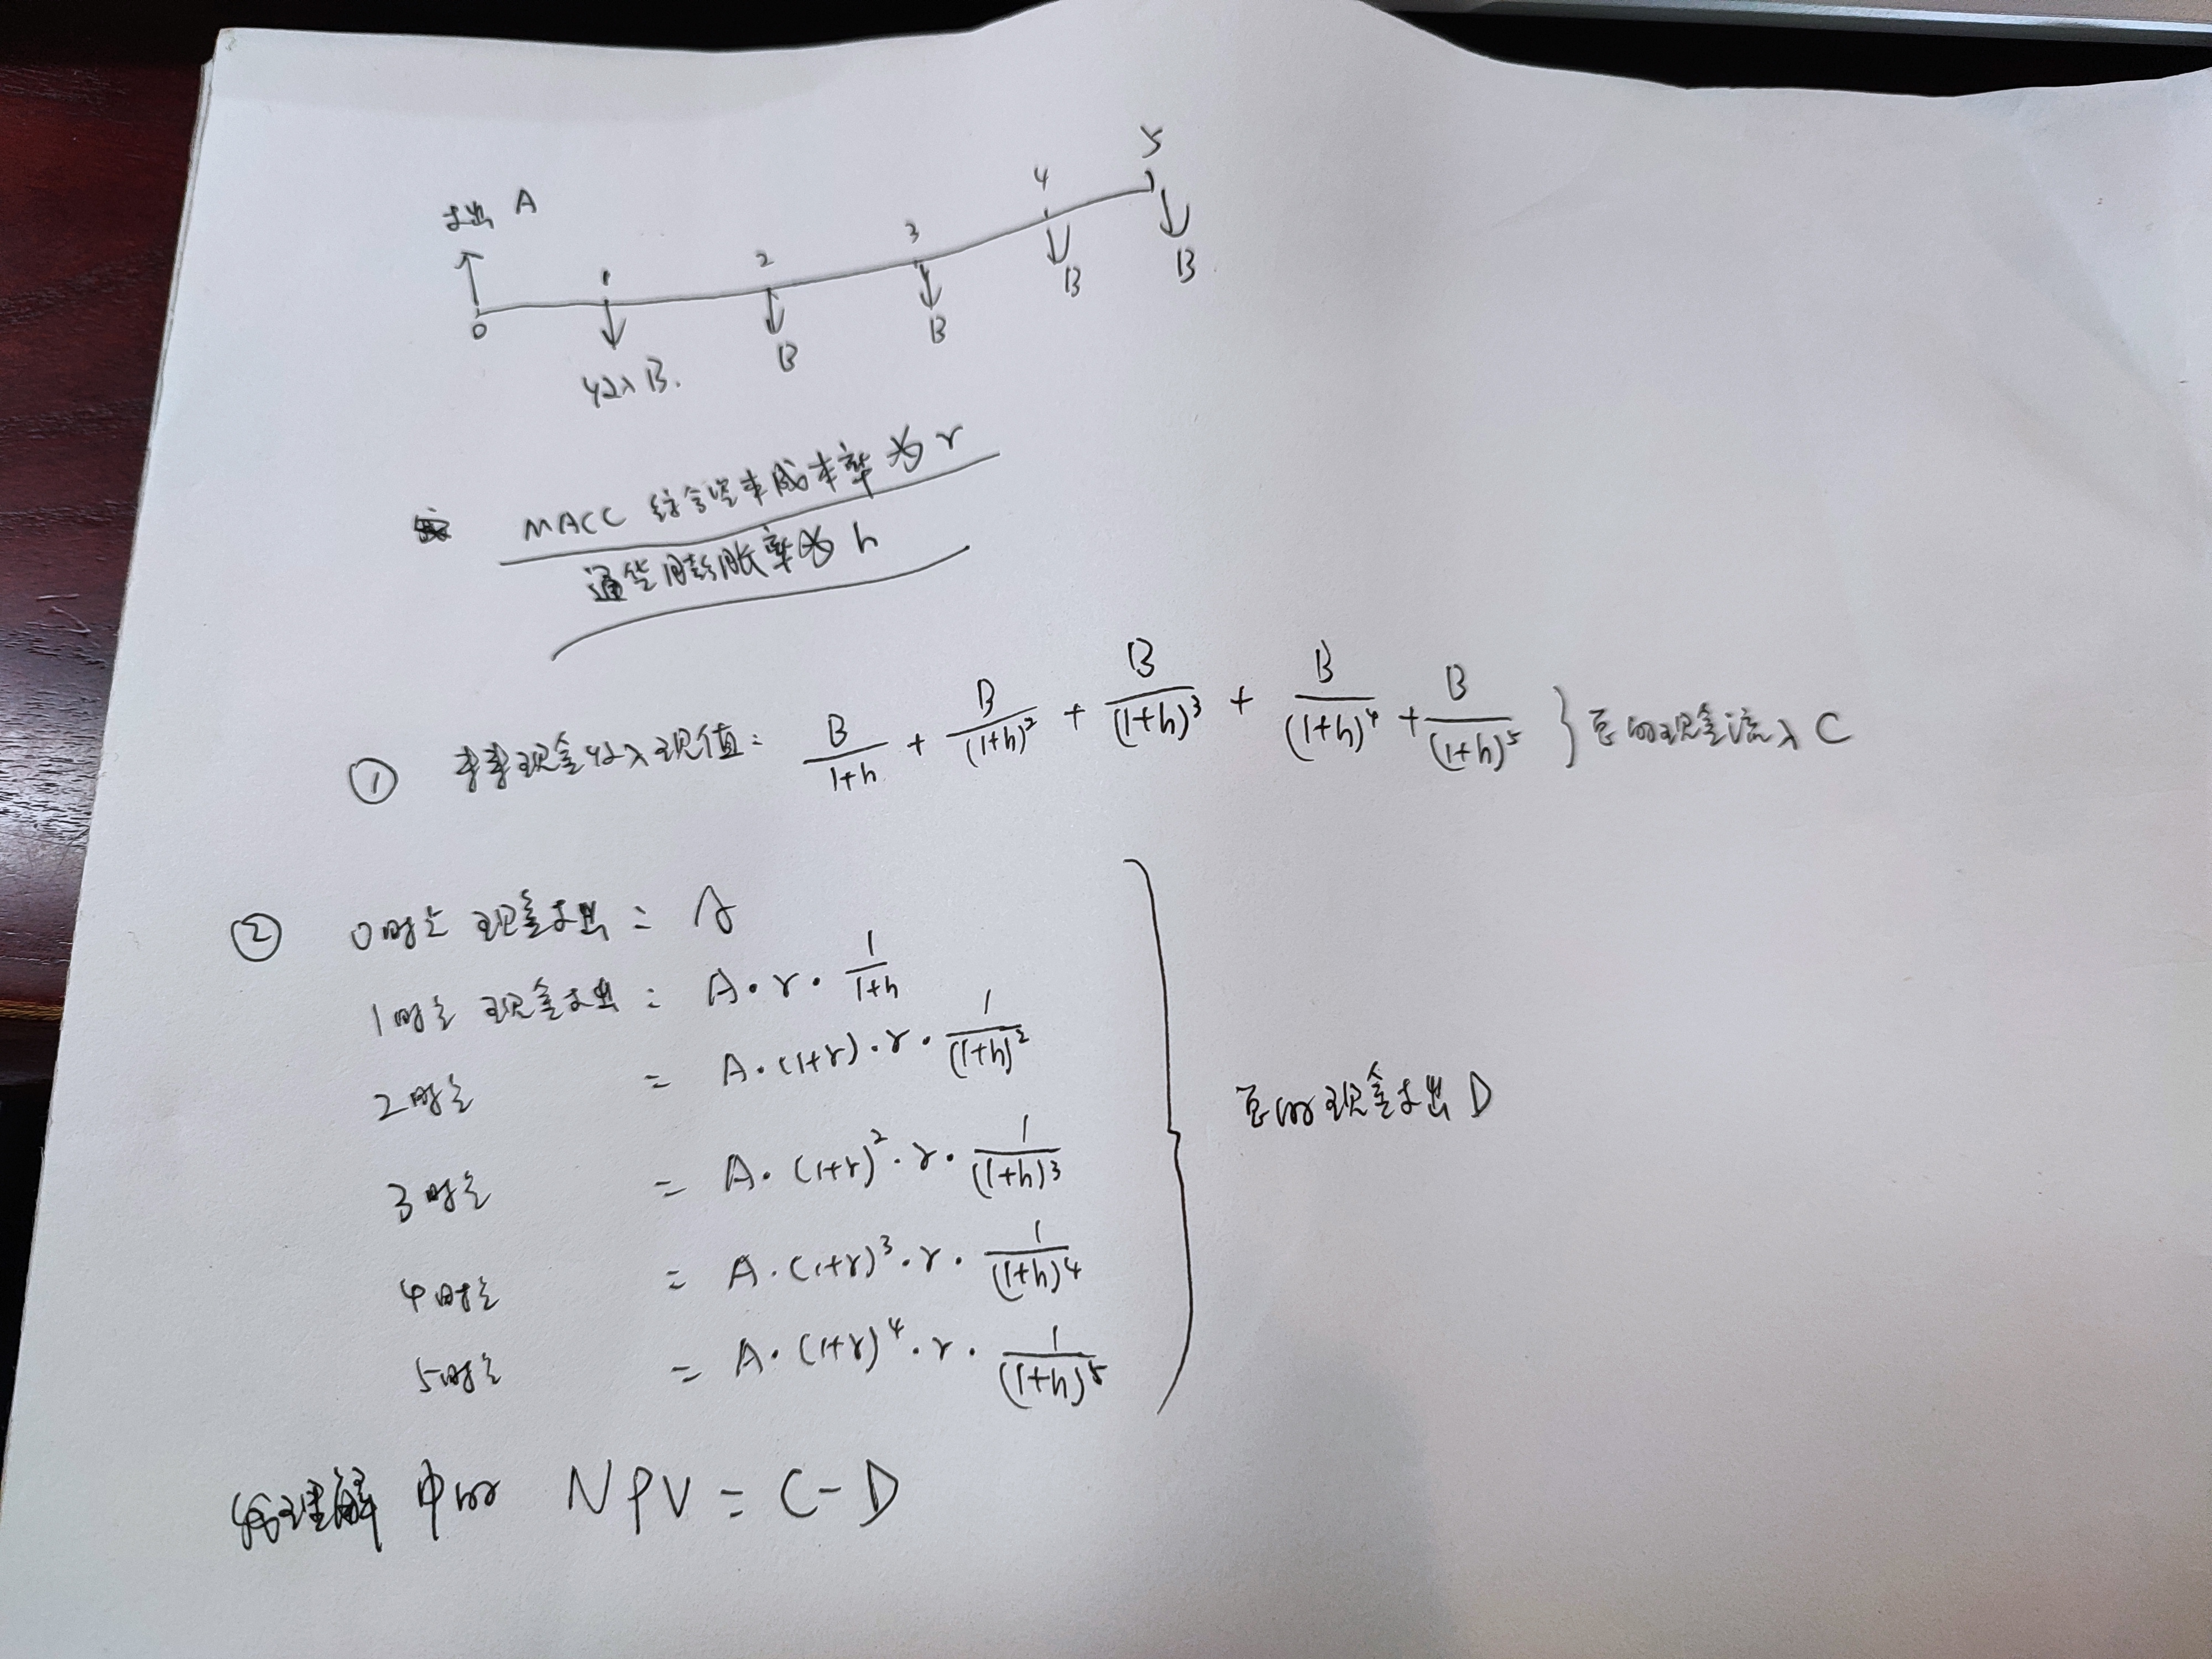 5
4
支出 A
3
2
1
0
B
B
B
B
收入 B.
MACC 综合资本成本率为 r
通货膨胀率为 h
① 未来现金收入现值: B/(1+h) + B/(1+h)² + B/(1+h)³ + B/(1+h)⁴ + B/(1+h)⁵ } 总的现金流入 C
② 0时点 现金支出 = A
1时点 现金支出 = A·r·1/(1+h)
2时点 = A·(1+r)·r·1/(1+h)²
总的现金支出 D
3时点 = A·(1+r)²·r·1/(1+h)³
4时点 = A·(1+r)³·r·1/(1+h)⁴
5时点 = A·(1+r)⁴·r·1/(1+h)⁵
理解中的 NPV = C-D